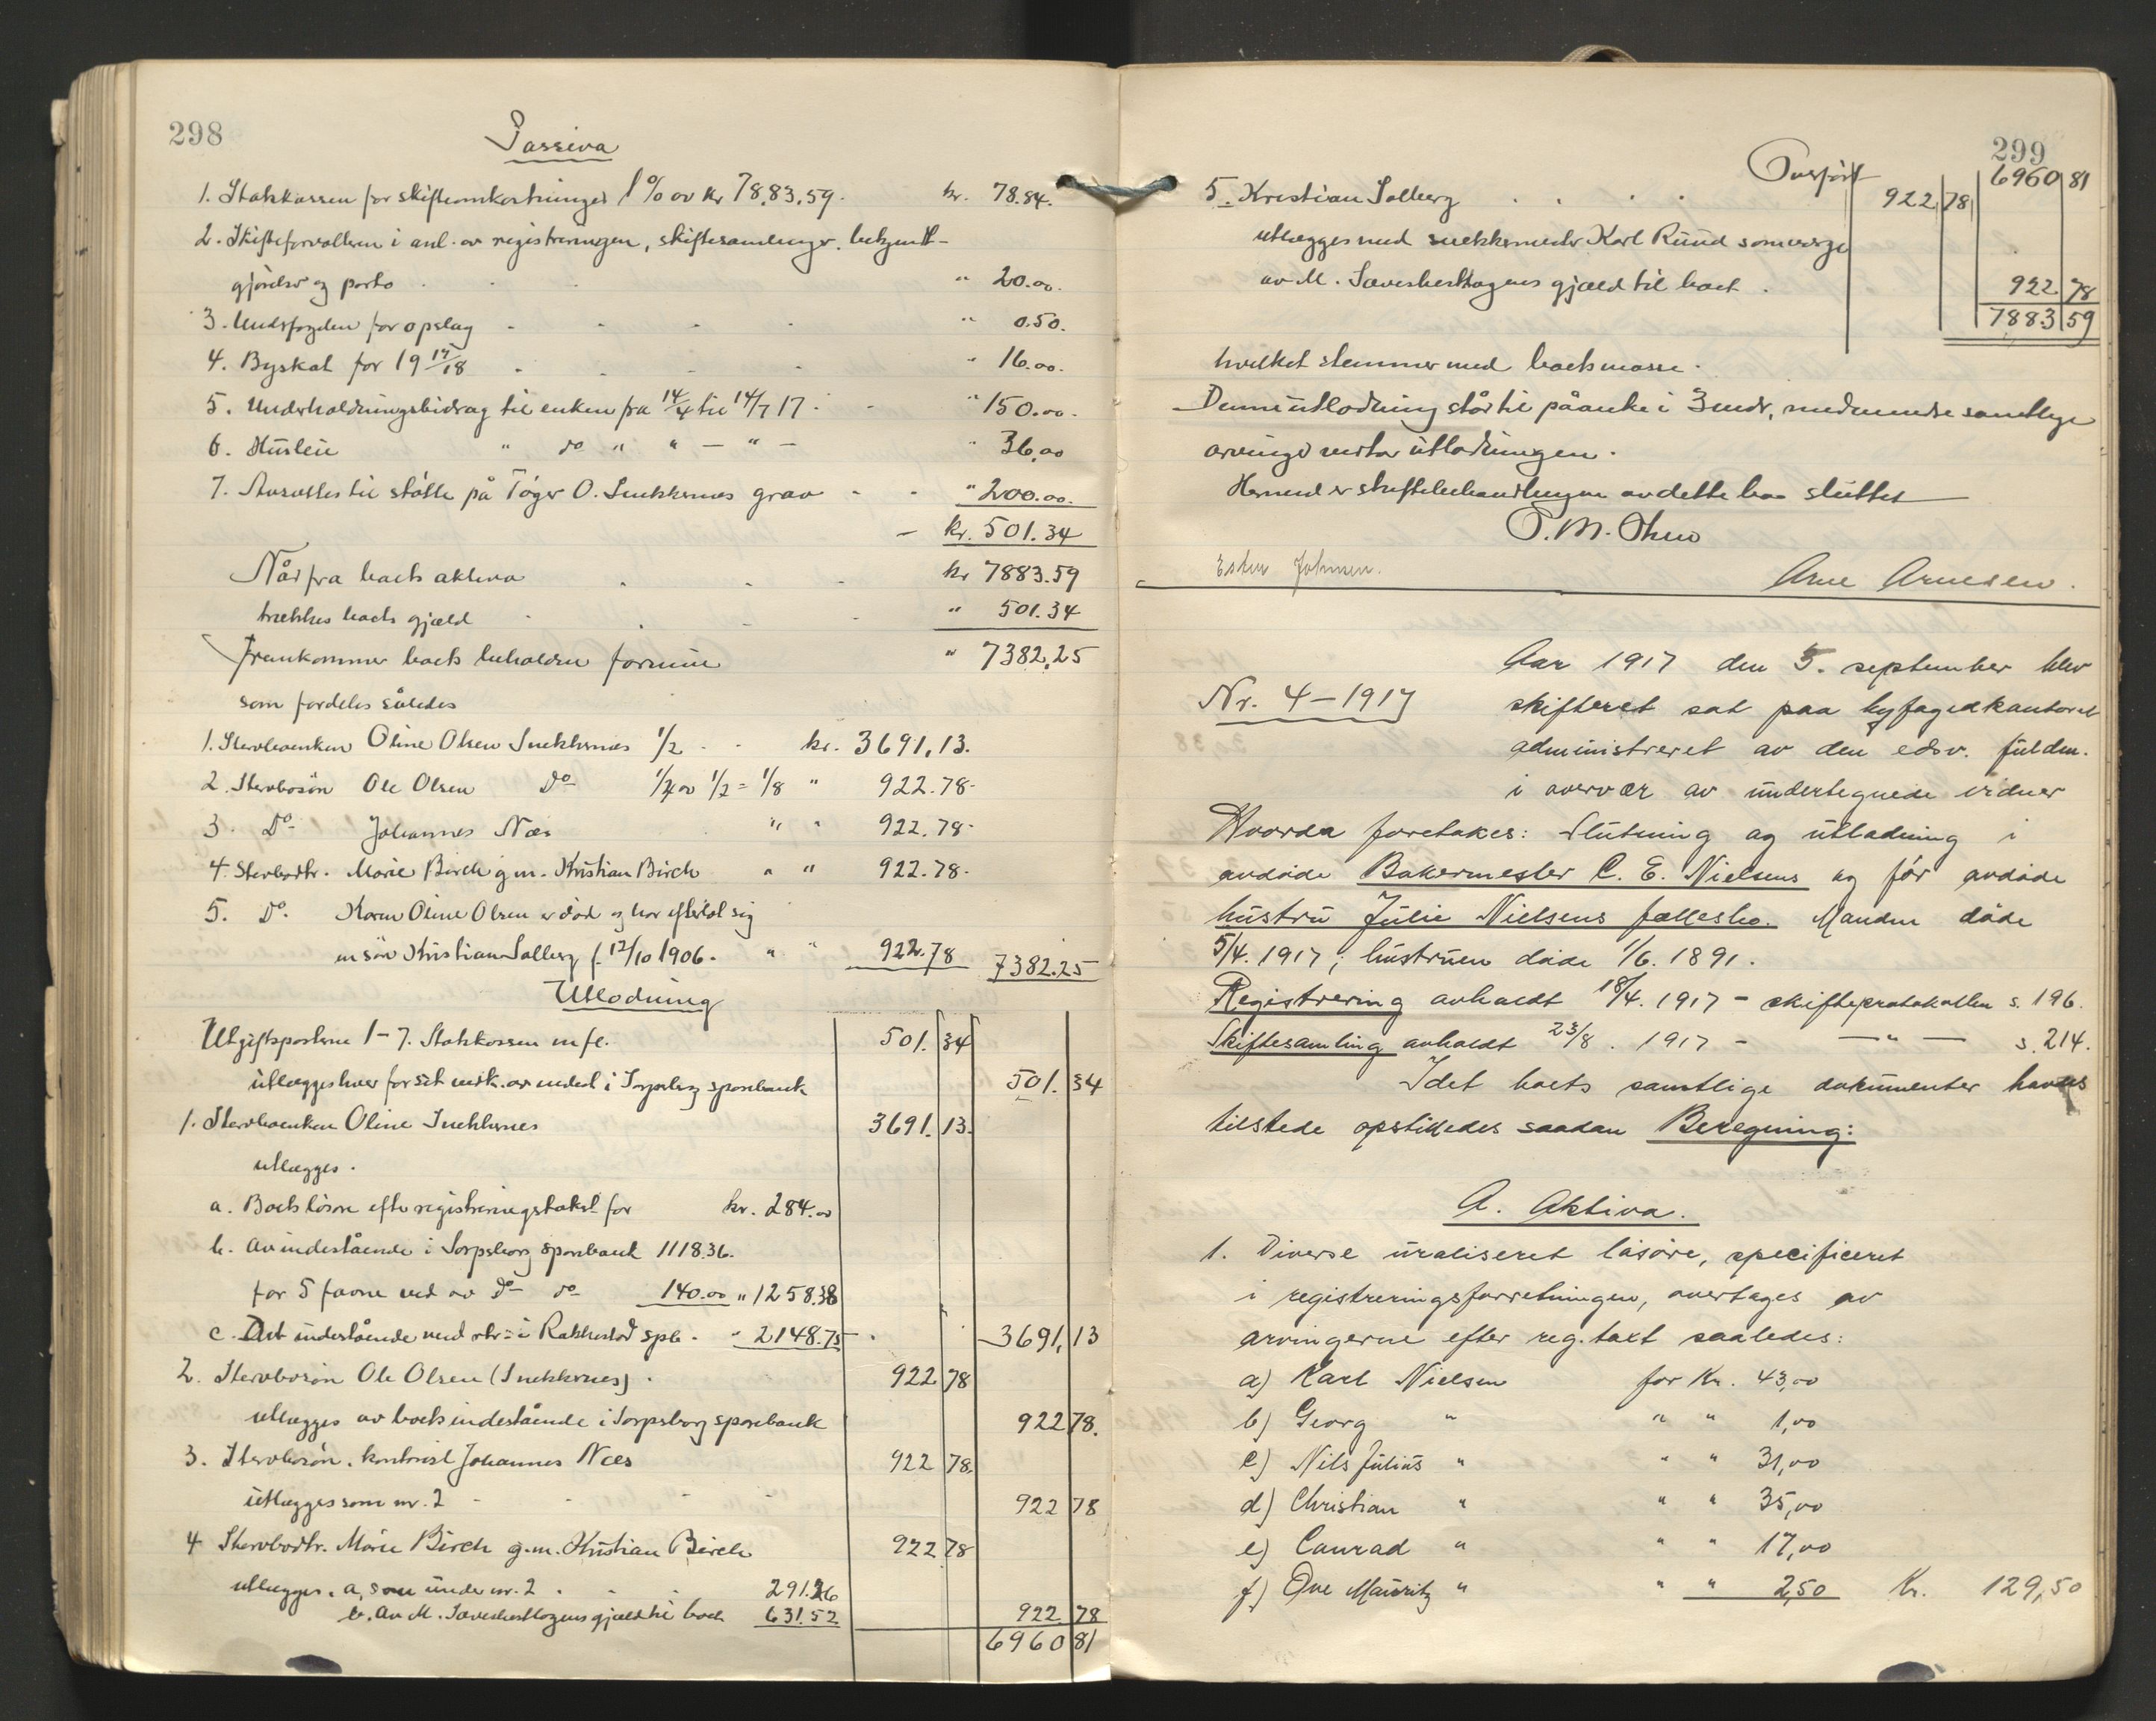 298
Passiva
1. Statskassen for skifteomkostninger 1% av kr 78,83,59. kr. 78.84.
2. Skifteforvalteren i anl. av registreringen, skiftesamlinger, bekjent-
gjörelser og porto . . " 20.00.
3. for opslag - - - - " 0.50.
4. Byskat for 19 17/18 . . . . " 16.00.
5. Underholdningsbidrag til enken fra 14/4 til 14/7 17 . - " 150.00.
6. Husleie " do " " — " — " 36,00
7. Avsættes til stötte på Töger O. Snekkernes grav - - " 200.00.
— kr. 501.34
Når fra boets aktiva . - - kr 7883.59
trækkes boets gjæld . . - - " 501.34
fremkommer boets beholdne formue " 7382,25
som fordeles således
1. Stervboenken Oline Olsen Snekkernes 1/2 - - kr. 3691,13.
2. Stervbosön Ole Olsen Do 1/4 av 1/2 = 1/8 " 922.78-
3. Do Johannes Næs " " 922.78-
4. Stervbodtr. Marie Birch g.m. Kristian Birch " " 922.78-
5. Do. Karen Oline Olsen er död og har efterlat sig
en sön Kristian Solberg f. 12/10 1906. " " 922.78 7382.25
Utlodning
Utgiftsposterne 1-7. Statskassen m.fl. 501. 34
utlægges hver for sit vedk. av indest i Sarpsborg sparebank 501. 34
1. Stervboenken Oline Snekkernes 3691. 13.
utlægges.
a. Boets lösöre efter registreringstakst for kr. 284.00
b. Av indestående i Sarpsborg sparebank 1118.36.
for 5 favne ved av Do do 140.00 " 1258.38
c. Det indestående ved i Rakkestad spb. - " 2148.75 - . 3691, 13
2. Stervbosön Ole Olsen (Snekkernes) . 922 78
utlægges av boets indestående i Sarpsborg sparebank 922 78.
3. Stervbosön, kontorist Johannes Næs 922 78.
utlægges som nr. 2 - - - - 922 78
4 Stervbodtr. Marie Birch g.m. Kristian Birch 922 78
utlægges. a, som under nr. 2 . - - 291.26
b. Av M. gjæld til boet 631.52 922 78
6960 81
299
Overført 6960 81
5. Kristian Solberg . . . . 922 78
utlægges ved snekkermester Karl Ruud som verge
av M. gjæld til boet . 922 78
7883 59
hvilket stemmer med boets masse.
Denne utlodning står til påanke i 3 mdr, medmindre samtlige
arvinger vedtar utlodningen.
Hermed er skiftebehandlingen av dette bo sluttet
Johnsen. Arne Arnesen.
Nr. 4-1917
Aar 1917 den 5. september blev
skifteret sat paa byfogedkontoret
administreret av den edsv. fuldm.
i overvær av undertegnede vidner
Hvorda foretokes: Slutning og utlodning i
avdøde Bakermester C. E. Nielsens og før avdøde
hustru Julie Nielsens fællesbo. Manden døde
5/4. 1917; hustruen døde 1/6. 1891.
Registrering avholdt 18/4. 1917 - skifteprotokollen s. 196.
Skiftesamling avholdt 23/8. 1917 - — " — s. 214.
Idet boets samtlige dokumenter havdes
tilstede opstilledes saadan Beregning:
A. Aktiva.
1. Diverse uraliseret løsøre, specificeret
i registreringsforretningen, overtages av
arvingerne efter reg. takst saaledes:
a) Karl Nielsen for Kr. 43,00
b) Georg " " " 1,00
c) Nils Julius " " " 31,00
d) Christian " " " 35,00
e) Conrad " " " 17,00
f) Ove Mauritz " " " 2,50 Kr. 129,50